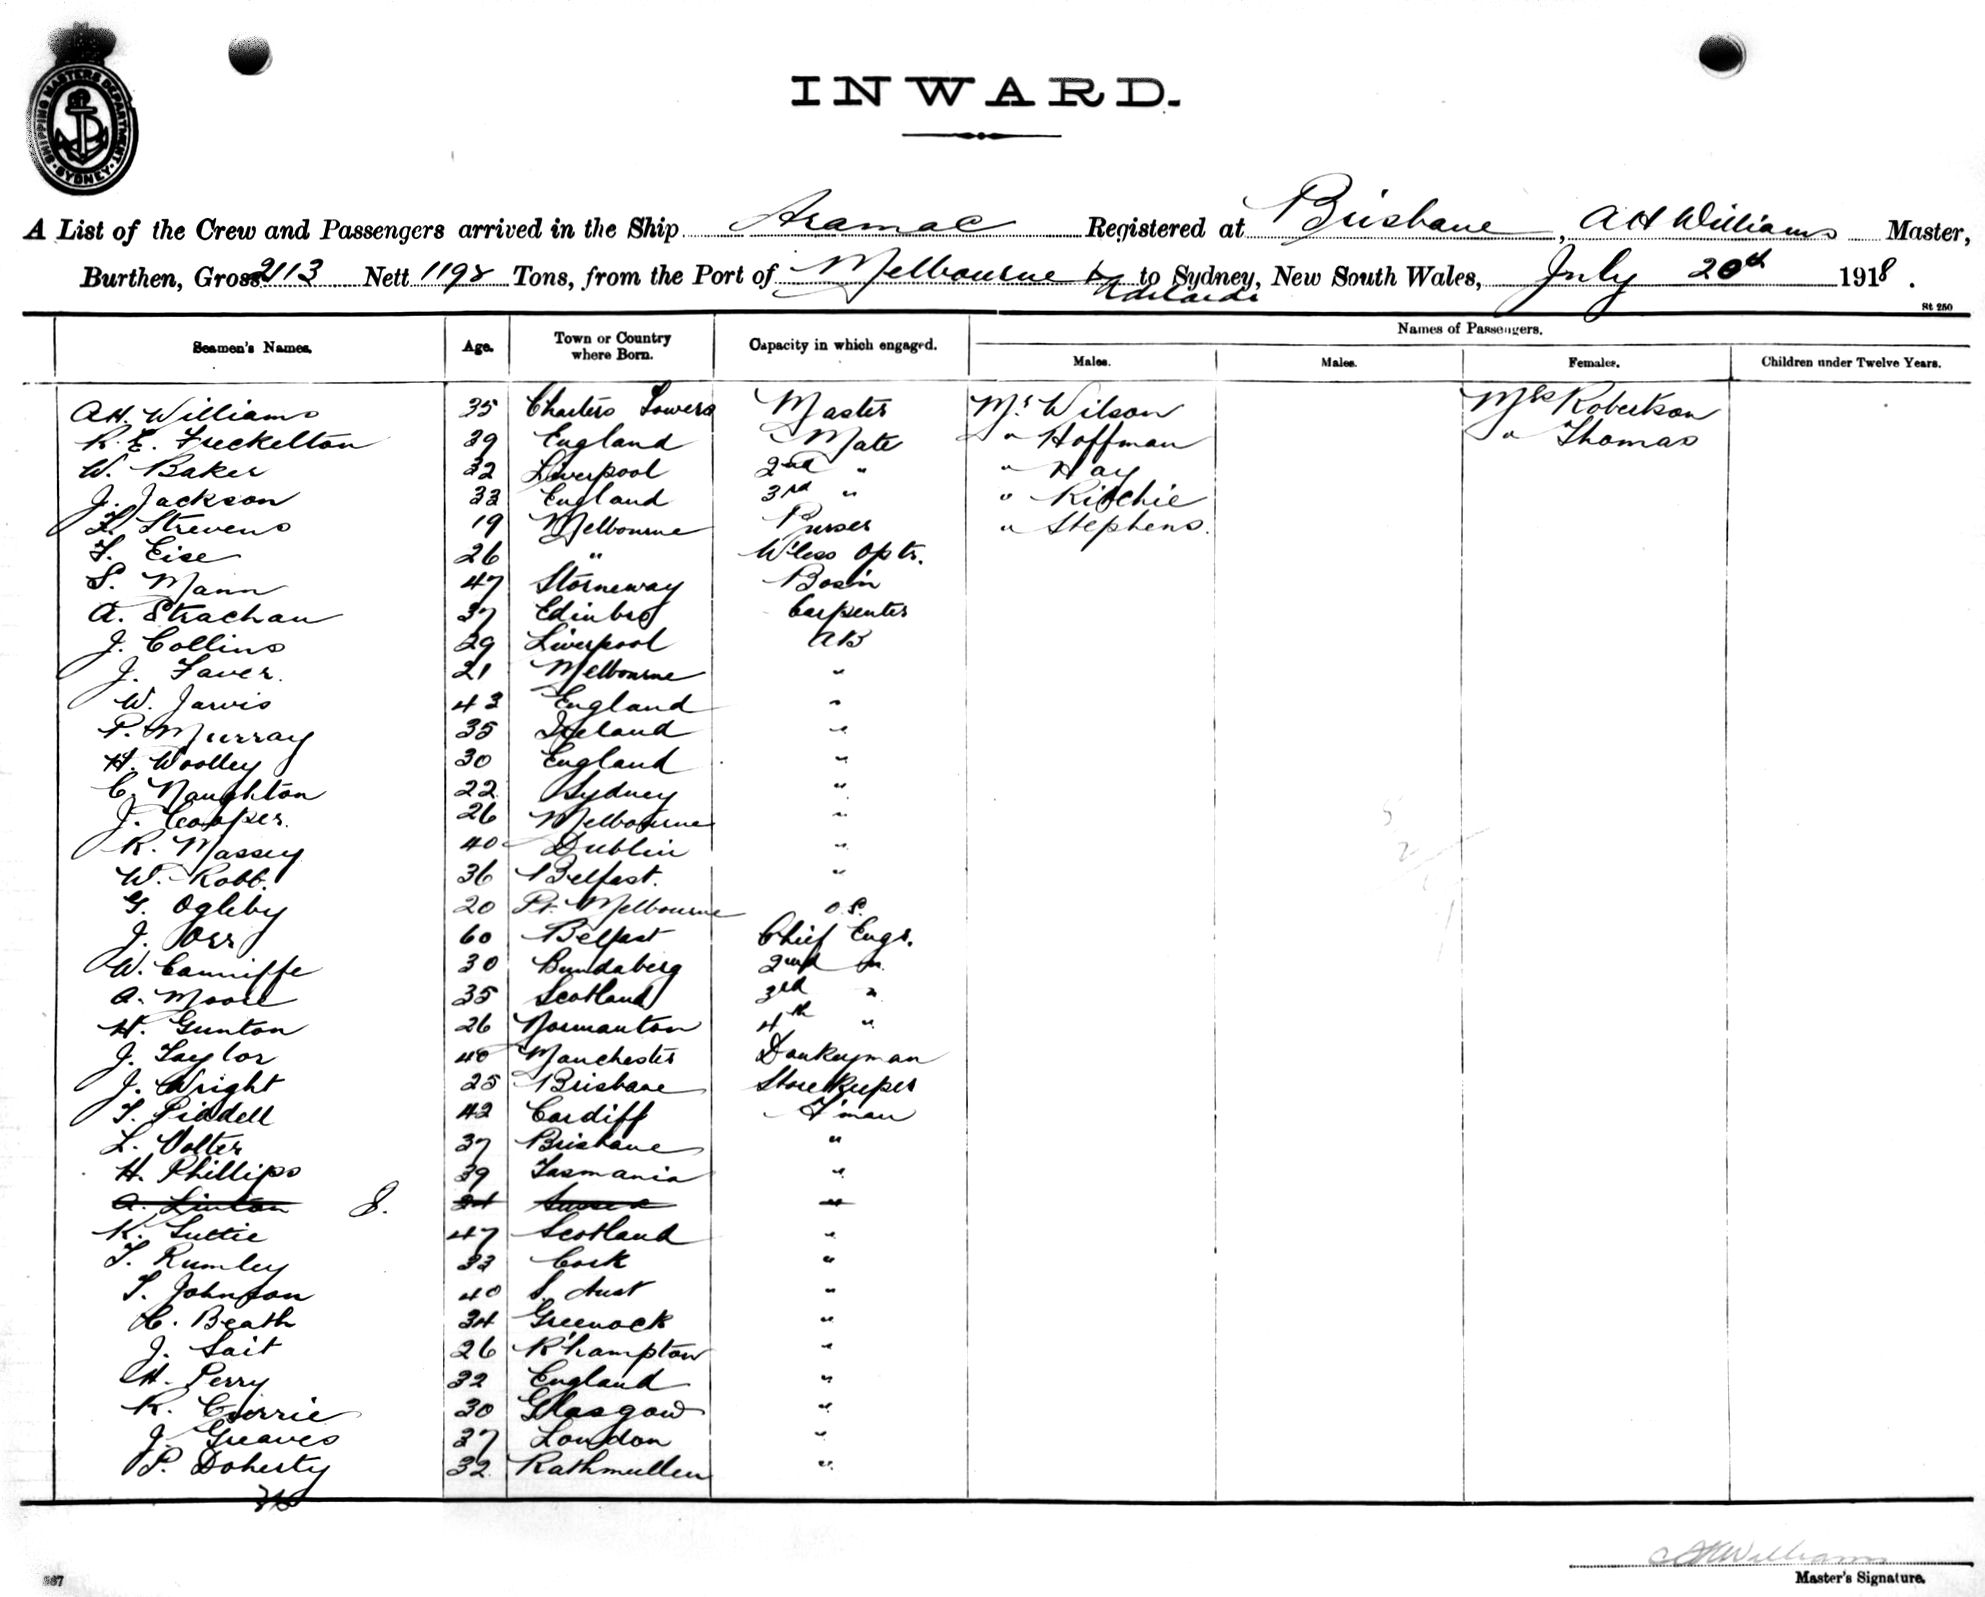 SHIPPING MASTERS DEPARTMENT
SYDNEY
INWARD.
A List of the Crew and Passengers arrived in the Ship Aramac Registered at Brisbane, A H Williams Master,
Burthen, Gross 2113 Nett 1198 Tons, from the Port of Melbourne to Sydney, New South Wales, July 20th 1918.
Adelaide
St 250
Seamen's Names. Age. Town or Country where Born. Capacity in which engaged. Names of Passengers.
Males. Males. Females. Children under Twelve Years.
A.H. Williams 35 Charters Towers Master Mr Wilson Mrs Robertson
R. E. Freckelton 39 England Mate " Hoffman " Thomas
W. Baker 32 Liverpool 2nd " " Hay
J. Jackson 33 England 3rd " " Ritchie
L. Strevens 19 Melbourne Purser " Stephens.
F. Eise 26 " W'less Optr.
S. Mann 47 Storneway Bos'n
A. Strachan 37 Edinbro Carpenter
J. Collins 29 Liverpool AB
J. Faver. 21 Melbourne "
W. Jarvis 43 England "
P. Murray 35 Ireland "
H. Woolley 30 England "
C. Naughton 22 Sydney "
J. Cooper. 26 Melbourne "
R. Massey 40 Dublin "
W. Robb. 36 Belfast. "
G. Ogleby 20 Pt. Melbourne O.S.
J. Orr 60 Belfast Chief Engr.
W. Canniffe 30 Bundaberg 2nd "
A. Moore 35 Scotland 3rd "
H. Gunton 26 Normanton 4th "
J. Taylor 40 Manchester Donkeyman
J. Wright 25 Brisbane Storekeeper
T. Piddell 42 Cardiff F'man
L. Volter 37 Brisbane "
H. Phillips 39 Tasmania "
A. Linton 24 Sussex "
K. Suttie 47 Scotland "
T. Rumley 33 Cork "
S. Johnson 40 S. Aust "
C. Beath 34 Greenock "
J. Sait 26 R'hampton "
H. Perry 32 England "
R. Currie 30 Glasgow "
J. Greaves 37 London "
P. Doherty 32 Rathmullen "
AHWilliams
Master's Signature.